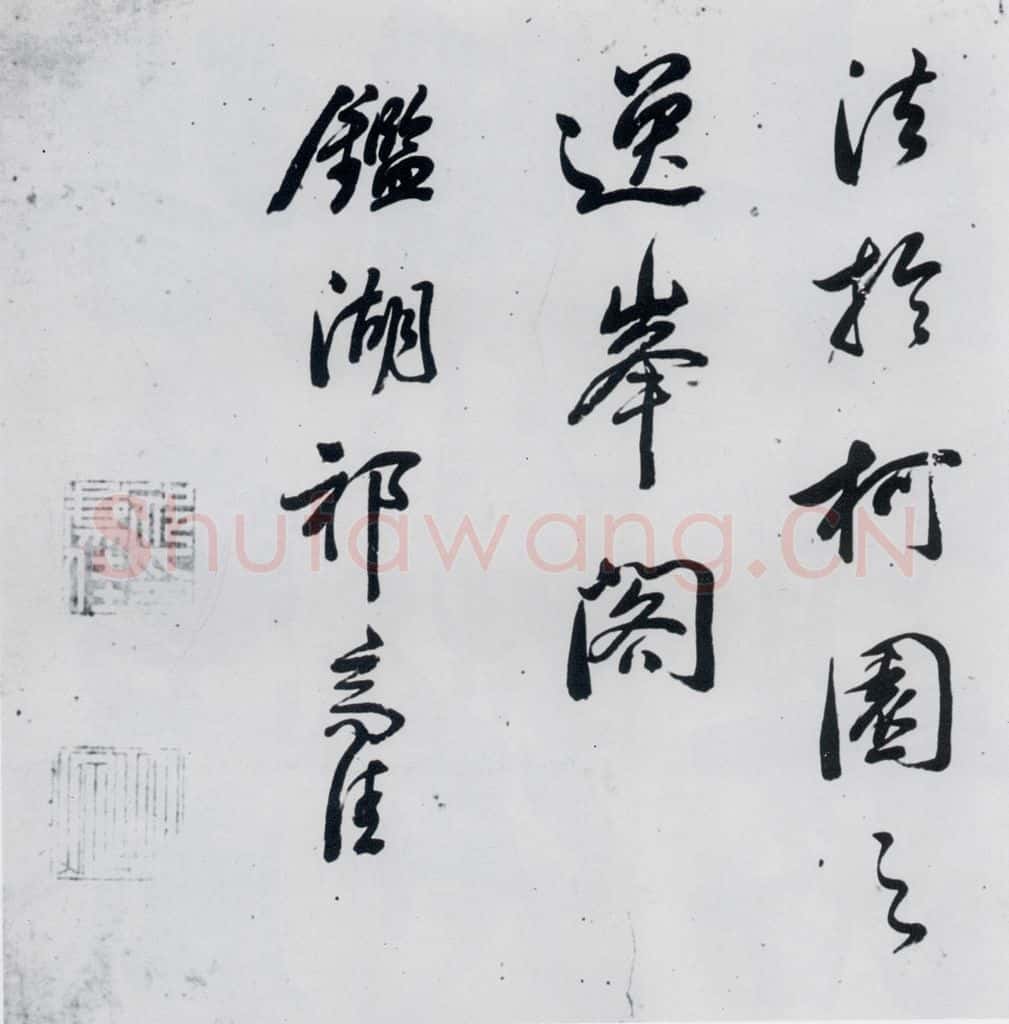 法於柯園之
選峯閣
鑑湖祁豸佳
Shufawang.CN